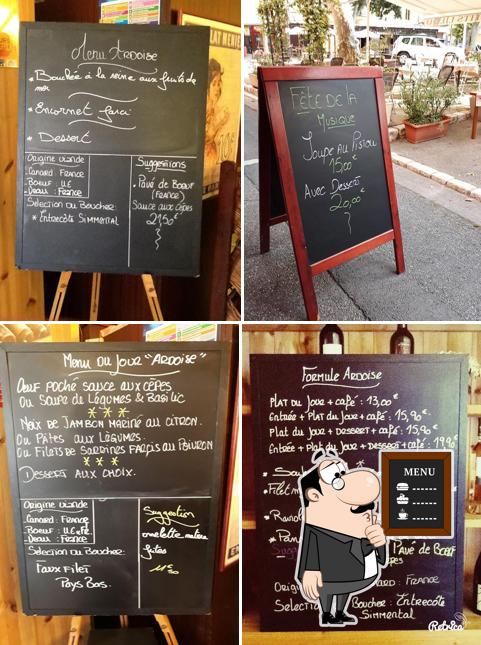 Menu Ardoise
* Bouchée à la reine aux fruits de
mer
* Encornet farci
* Dessert
Origine viande
Canard: France
Boeuf: U.E
Veau: France
Sélection du Boucher:
* Entrecôte Simmental
Suggestions
* Pavé de Boeuf
(France)
Sauce aux cèpes
21,50€
LAT MENIER
FÊTE DE LA
MUSIQUE
Soupe au Pistou
15,00€
Avec Dessert
20,00€
Menu du Jour "Ardoise"
Oeuf poché sauce aux cèpes
Ou Soupe de Légumes & Basilic
* * *
Noix de Jambon mariné au citron.
Ou Pâtes aux Légumes.
Ou Filets de Sardines farçis au Poivron
* * *
Dessert aux choix.
Origine viande
Canard: France
Boeuf: U.E
Veau: France
Sélection du Boucher:
Faux Filet
Pays Bas.
Suggestion
omelette nature
frites
Formule Ardoise
Plat du Jour + café: 13,00€
Entrée + Plat du Jour + café: 15,90€
Plat du Jour + Dessert + café: 15,90€
Entrée + Plat du Jour + Dessert + café: 19,90€
MENU
Pavé de Boeuf
France
Boucher: Entrecôte
Simmental
Retrica